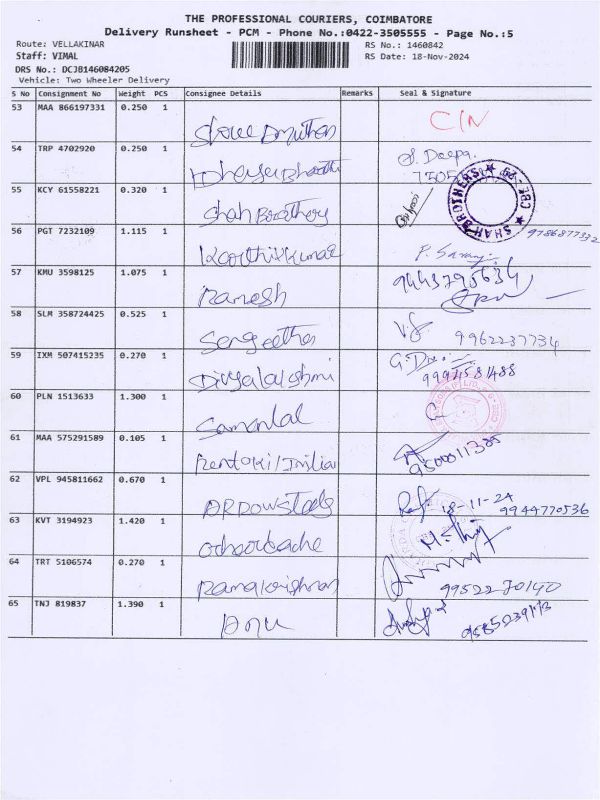 THE PROFESSIONAL COURIERS, COIMBATORE
Delivery Runsheet - PCM - Phone No.:0422-3505555 - Page No.:5
Route: VELLAKINAR RS No.: 1460842
Staff: VIMAL RS Date: 18-Nov-2024
DRS No.: DCJB146084205
Vehicle: Two Wheeler Delivery
S No Consignment No Weight PCS Consignee Details Remarks Seal & Signature
53 MAA 866197331 0.250 1 C/N
54 TRP 4702920 0.250 1 S. Deepa
55 KCY 61558221 0.320 1 Shah SHAH BROTHERS CBE-29
56 PGT 7232109 1.115 1 Karthikkumar 9786877332
57 KMU 3598125 1.075 1 Ramesh 9443795634
58 SLM 358724425 0.525 1 Sengeetha 9962237734
59 IXM 507415235 0.270 1 Divyalakshmi
60 PLN 1513633 1.300 1 Samanlal
61 MAA 575291589 0.105 1
62 VPL 945811662 0.670 1 18-11-24 9944770536
63 KVT 3194923 1.420 1
64 TRT 5106574 0.270 1 Ramakrishnan 99522 70140
65 TNJ 819837 1.390 1 Anu